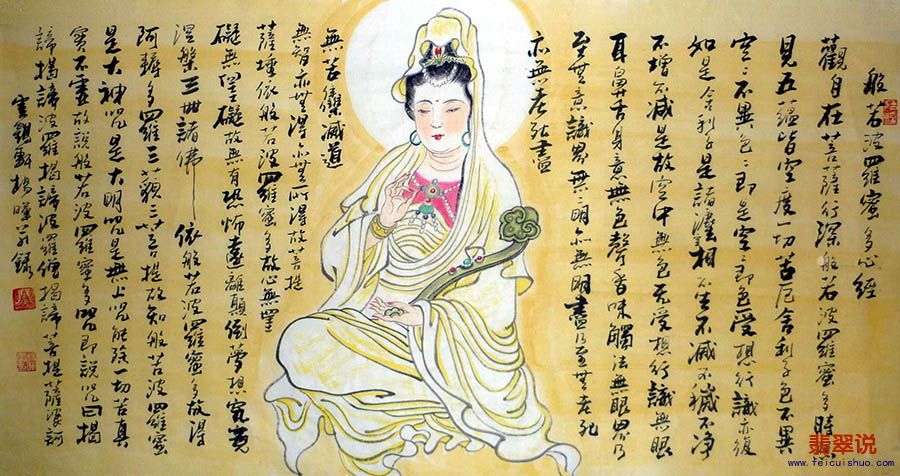 般若波羅蜜多心经
觀自在菩薩行深般若波羅蜜多時照
見五蘊皆空度一切苦厄舍利子色不異
空〻不異色〻即是空〻即色受想行識亦復
如是舍利子是諸灋相不生不滅不穢不净
不增不减是故空中無色无受想行識無眼
耳鼻舌身意無色聲香味觸法無眼界乃
至無意識界無〻明亦無明盡乃至無老死
亦無老死盡
無苦集滅道
無智亦無得亦無所得故菩提
薩埵依般若波羅蜜多故心無罣
礙無罣礙故無有恐怖遠離顛倒夢想究竟
涅槃三世諸佛依般若波羅蜜多故得
阿耨多羅三藐三菩提故知般若波羅蜜
是大神咒是大明咒是無上咒能除一切苦真
實不虛故説般若波羅蜜多咒即説咒曰揭
諦揭諦波羅揭諦波羅僧揭諦菩提薩婆訶
翡翠说
www.feicuishuo.com